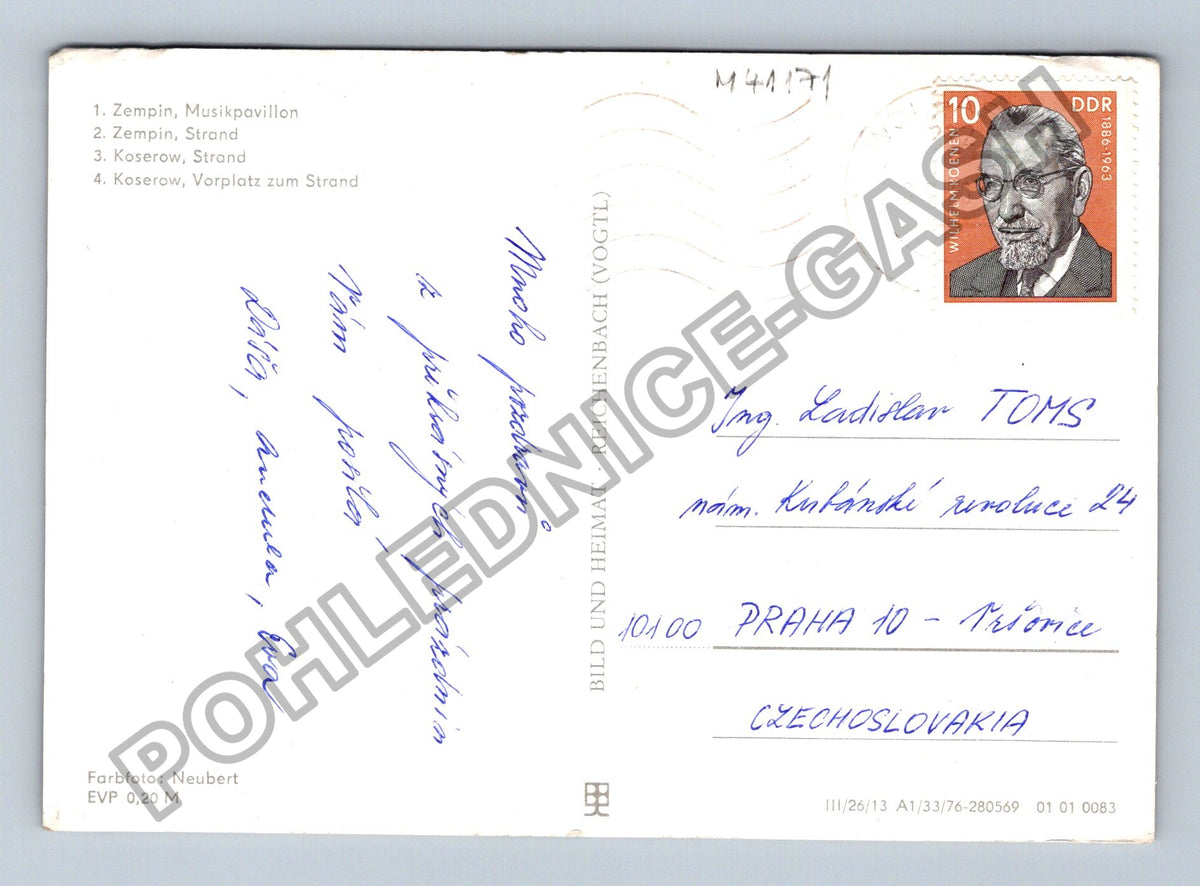 1. Zempin, Musikpavillon
2. Zempin, Strand
3. Koserow, Strand
4. Koserow, Vorplatz zum Strand
M41171
10 DDR
WILHELM KOENEN
1886-1963
Mnoho pozdravů
z překrásných prázdnin
Vám posílá
Eva
BILD UND HEIMAT · REICHENBACH (VOGTL)
Ing. Ladislav TOMS
nám. Kubánské revoluce 24
10100 PRAHA 10 - Vršovice
CZECHOSLOVAKIA
Farbfoto: Neubert
EVP 0,20 M
III/26/13 A1/33/76-280569 01 01 0083
POHLEDNICE-GASH